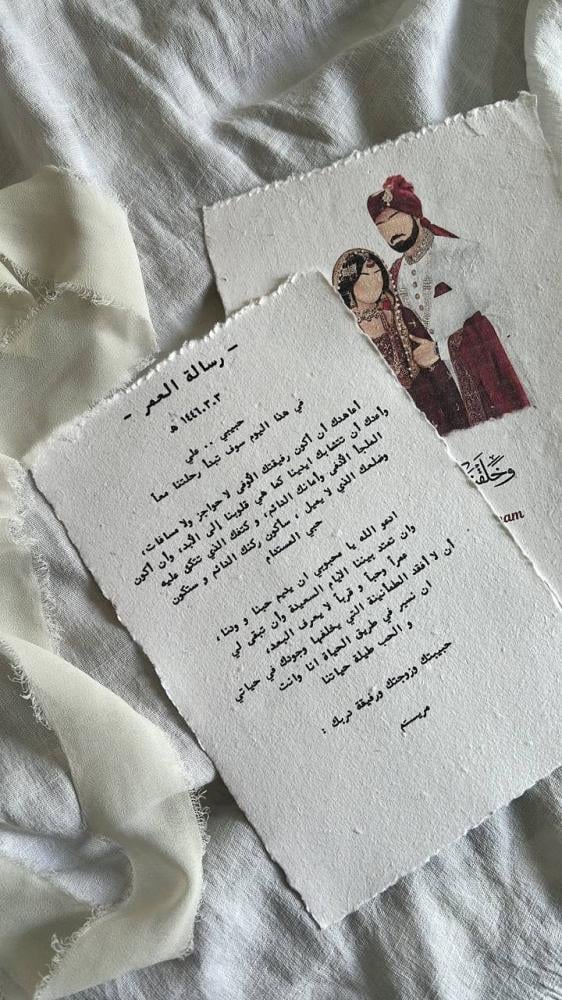 - رسالة العمر -
١٤٤٦.٣.٣ هـ
حبيبي .. علي
في هذا اليوم سوف تبدأ رحلتنا معاً
أعاهدك أن أكون رفيقتك الأوفى لا حواجز ولا مسافات،
وأعدك أن تتشابك أيدينا كما هي قلوبنا إلى الأبد، وأن أكون
الملجأ الأنقى وأمانك الدائم، و كتفك الذي تتكئ عليه
وضلعك الذي لا يميل ، سأكون ركنك الدائم و ستكون
حبي المستدام
ادعو الله يا محبوبي ان يديم حبنا و ودنا ،
وان تمتد بيننا الأيام السعيدة وأن تبقى لي
عمراً وحباً و قرباً لا يعرف البعد،
أن لا أفقد الطمأنينة التي يخلقها وجودك في حياتي
ان نسير في طريق الحياة انا وانت
و الحب طيلة حياتنا
حبيبتك وزوجتك ورفيقة دربك :
مريم
am